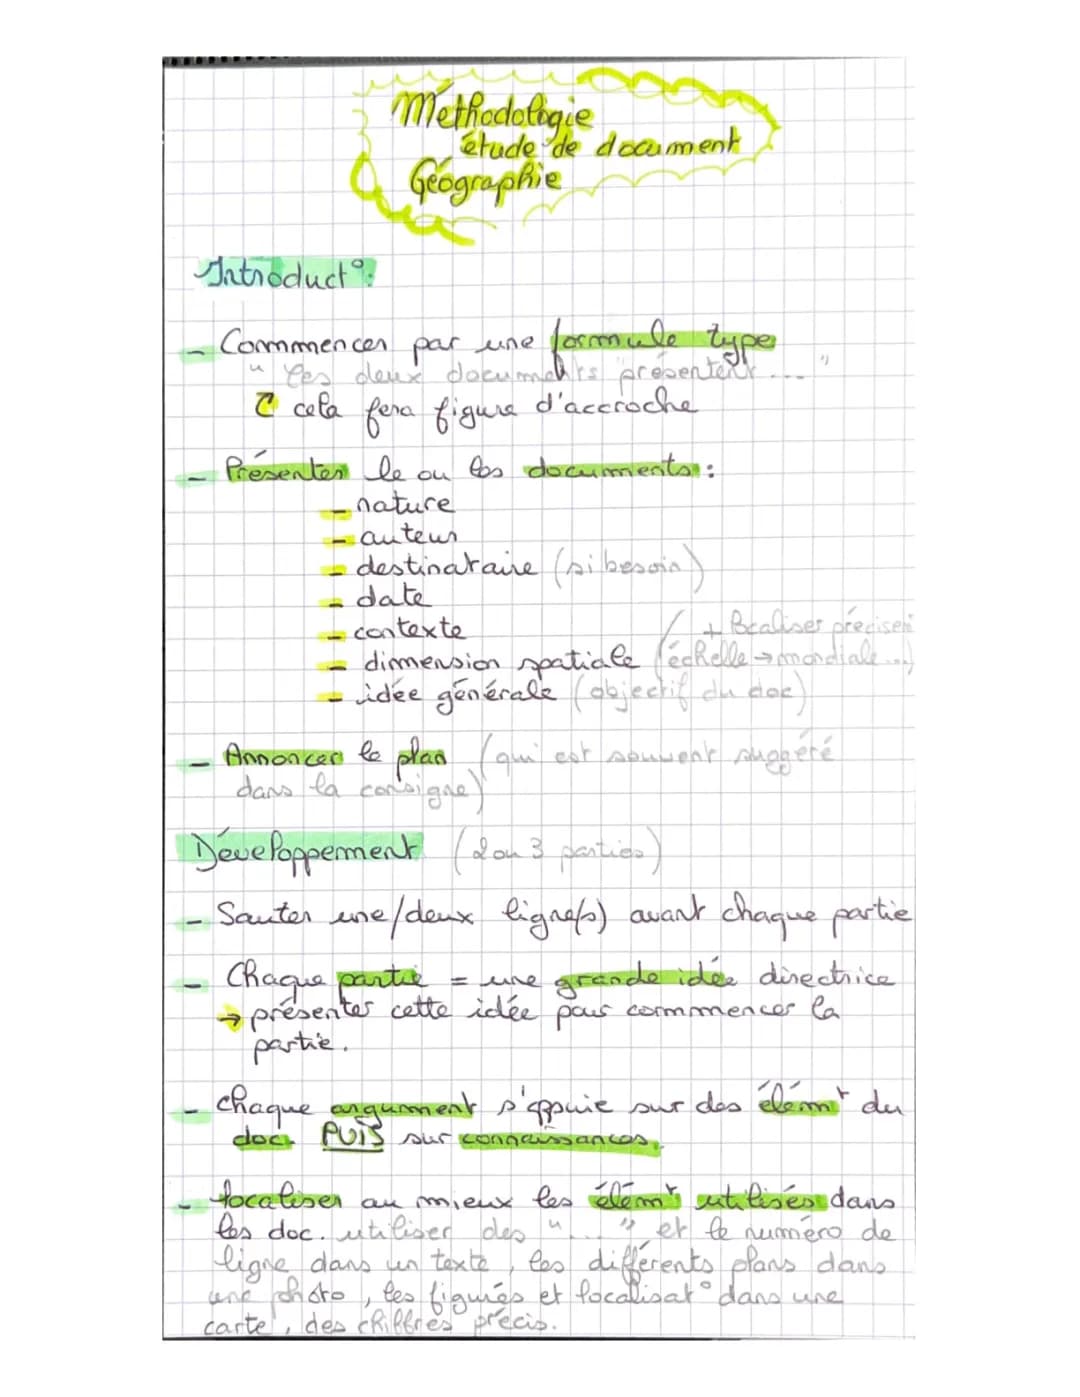 Méthodologie
étude de document
Géographie
Introduct°:
- Commencer par une formule type
" Les deux documents présentent .... "
cela fera figure d'accroche
- Présenter le ou les documents :
- nature
- auteur
- destinataire (si besoin)
- date
- contexte
- dimension spatiale (échelle → mondiale...)
+ localiser précisem
- idée générale (objectif du doc)
- Annoncer le plan (qui est souvent suggéré
dans la consigne)
Développement (2 ou 3 parties)
- Sauter une/deux ligne(s) avant chaque partie
- Chaque partie = une grande idée directrice
→ présenter cette idée pour commencer la
partie.
- chaque argument s'appuie sur des élémt du
doc. PUIS sur connaissances.
- localiser au mieux les élémts utilisés dans
les doc. utiliser des " .... " et le numéro de
ligne dans un texte, les différents plans dans
une photo, les figurés et localisat° dans une
carte, des chiffres précis.